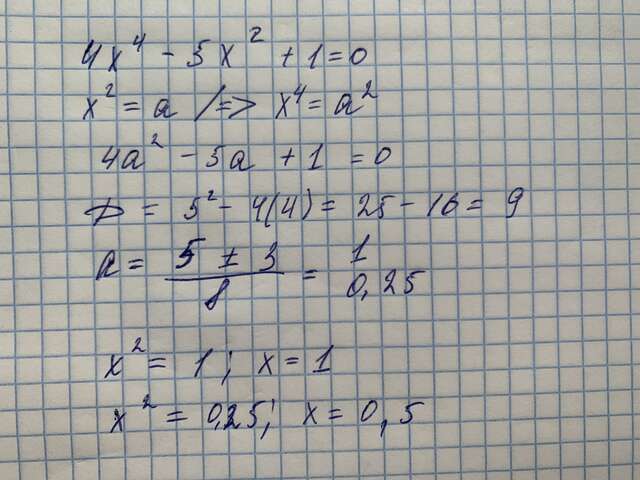 4x⁴ - 5x² + 1 = 0
x² = a /=> x⁴ = a²
4a² - 5a + 1 = 0
D = 5² - 4(4) = 25 - 16 = 9
a = (5 ± 3)/8 = 1
0,25
x² = 1; x = 1
x² = 0,25; x = 0,5